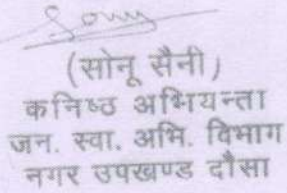 (सोनू सैनी)
कनिष्ठ अभियन्ता
जन. स्वा. अभि. विभाग
नगर उपखण्ड दौसा